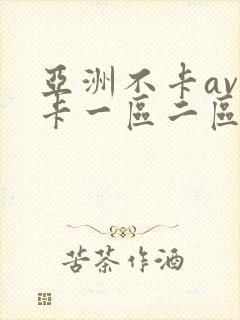 亞洲不卡av
卡一區二區
苦茶作酒